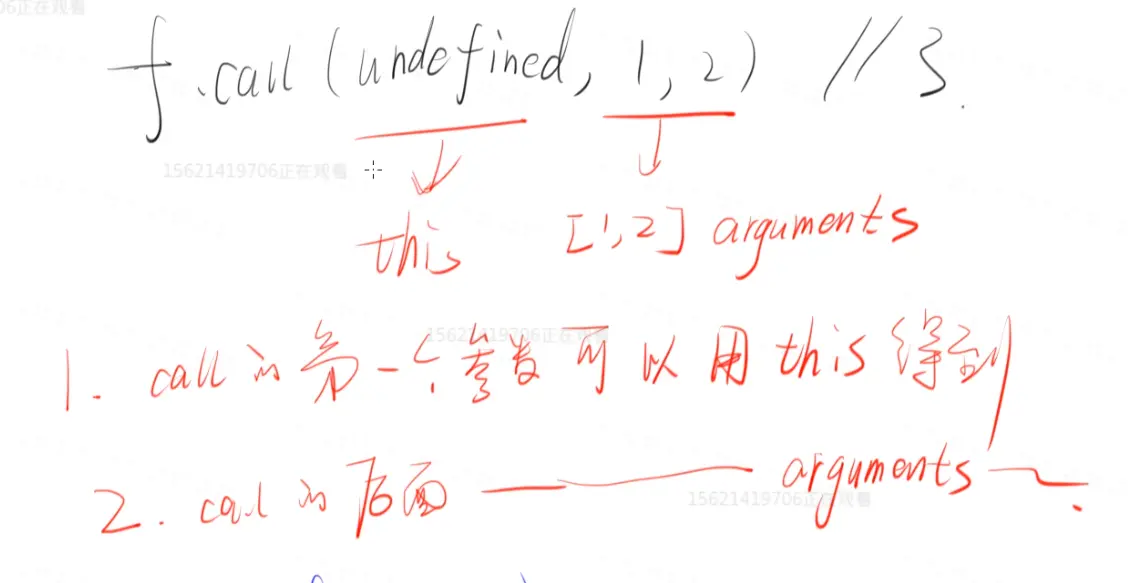 06正在观看
f.call(undefined, 1, 2) // 3.
15621419706正在观看
this [1,2] arguments
15621419706正在观看
1. call的第一个参数可以用this得到
2. call的后面 —— arguments ~.
15621419706正在观看